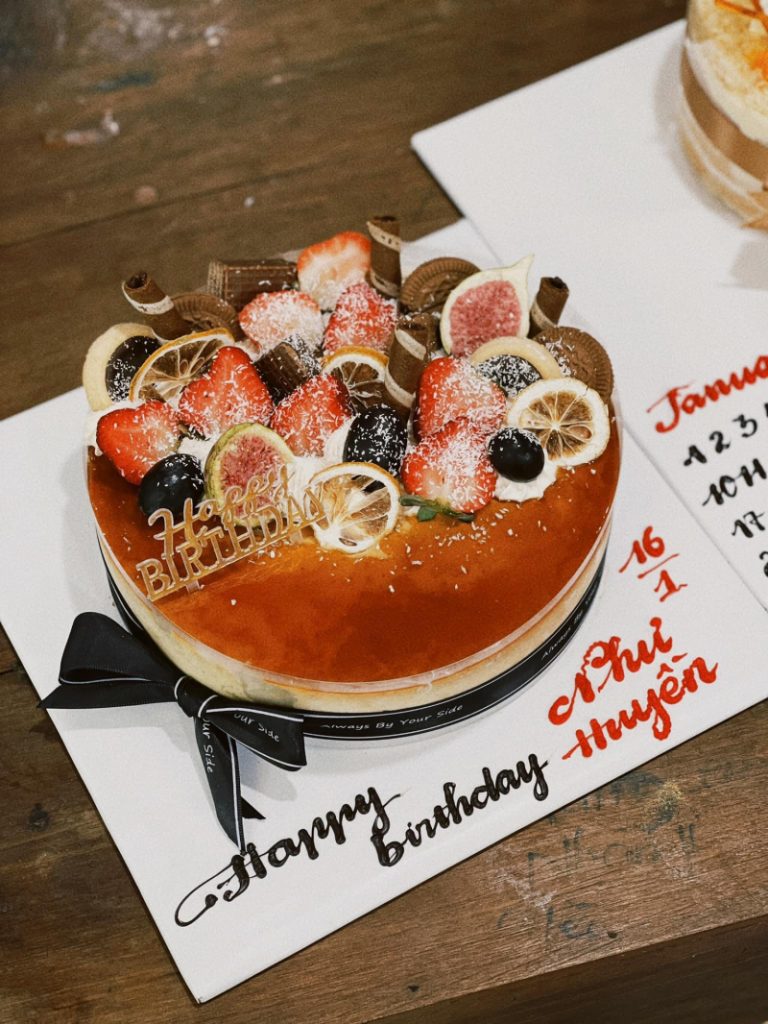 Happy
BIRTHDAY
Janua
1 2 3
10 11
17
16
1
Như
Huyền
Always By Your Side
Always By Your Side
our Side
our Side
Happy
Birthday